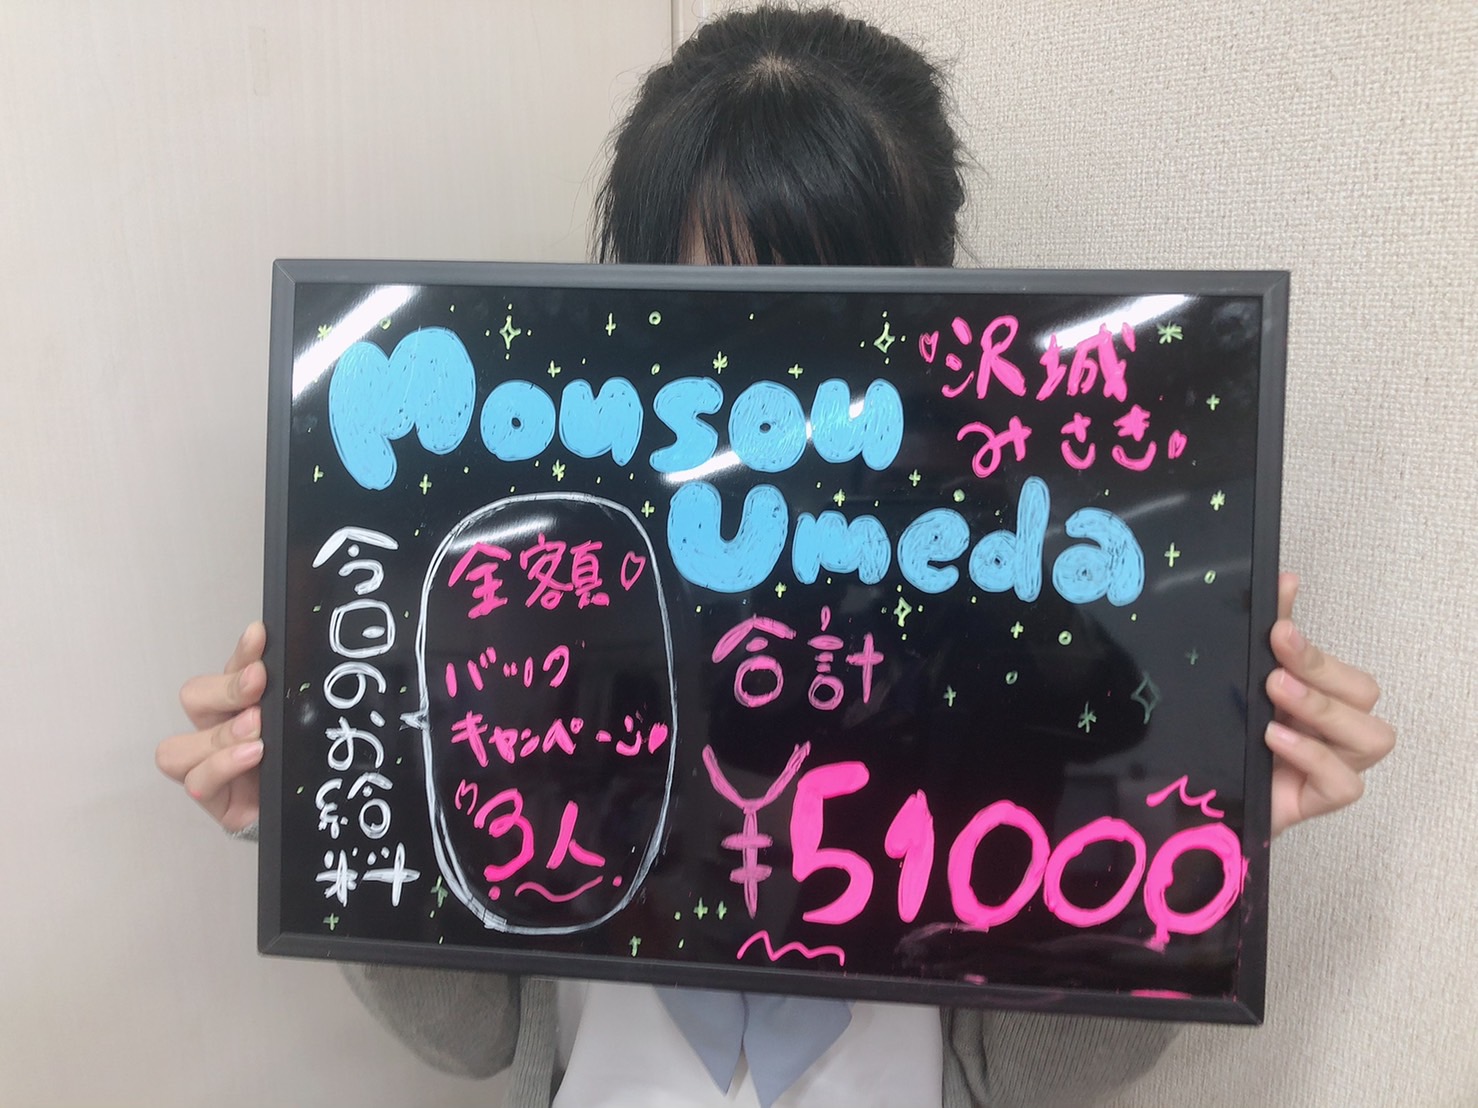 Mousou
Umeda
沢城
みさき
今日のお給料
全額
バック
キャンペーン
3人
合計
¥51000